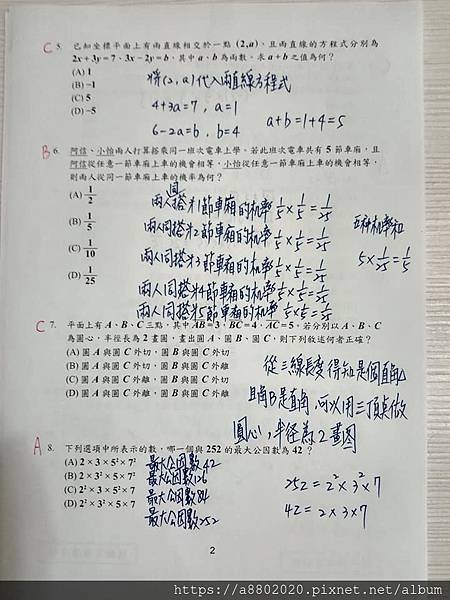 C 5. 已知坐標平面上有兩直線相交於一點 (2, a)，且兩直線的方程式分別為
2x + 3y = 7、3x − 2y = b，其中 a、b 為兩數。求 a + b 之值為何？
(A) 1
(B) −1
(C) 5
(D) −5
將(2, a)代入兩直線方程式
4+3a=7, a=1
6-2a=b, b=4
a+b=1+4=5
B 6. 阿信、小怡兩人打算搭乘同一班次電車上學。若此班次電車共有 5 節車廂，且
阿信從任意一節車廂上車的機會相等，小怡從任意一節車廂上車的機會相等，
則兩人從同一節車廂上車的機率為何？
(A) 1/2
(B) 1/5
(C) 1/10
(D) 1/25
兩人同搭第1節車廂的机率 1/5 × 1/5 = 1/25
兩人同搭第2節車廂的机率 1/5 × 1/5 = 1/25
兩人同搭第3節車廂的机率 1/5 × 1/5 = 1/25
兩人同搭第4節車廂的机率 1/5 × 1/5 = 1/25
兩人同搭第5節車廂的机率 1/5 × 1/5 = 1/25
五种机率和
5 × 1/25 = 1/5
C 7. 平面上有 A、B、C 三點，其中 AB = 3，BC = 4，AC = 5。若分別以 A、B、C
為圓心，半徑長為 2 畫圓，畫出圓 A、圓 B、圓 C，則下列敘述何者正確？
(A) 圓 A 與圓 C 外切，圓 B 與圓 C 外切
(B) 圓 A 與圓 C 外切，圓 B 與圓 C 外離
(C) 圓 A 與圓 C 外離，圓 B 與圓 C 外切
(D) 圓 A 與圓 C 外離，圓 B 與圓 C 外離
從三線長度得知是個直角△
且角B是直角，可以用三頂點做
圓心，半径為2畫图
A 8. 下列選項中所表示的數，哪一個與 252 的最大公因數為 42？
(A) 2 × 3 × 5² × 7² 最大公因數42
(B) 2 × 3² × 5 × 7² 最大公因數126
(C) 2² × 3 × 5² × 7 最大公因數84
(D) 2² × 3² × 5 × 7 最大公因數252
252 = 2² × 3² × 7
42 = 2 × 3 × 7
2
https://a8802020.pixnet.net/album